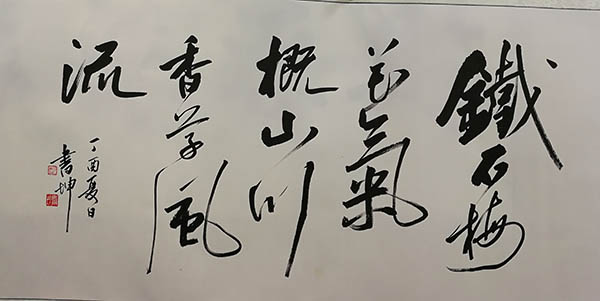 鐵石梅
花氣
概山川
香草風
流
丁酉夏日
書坤